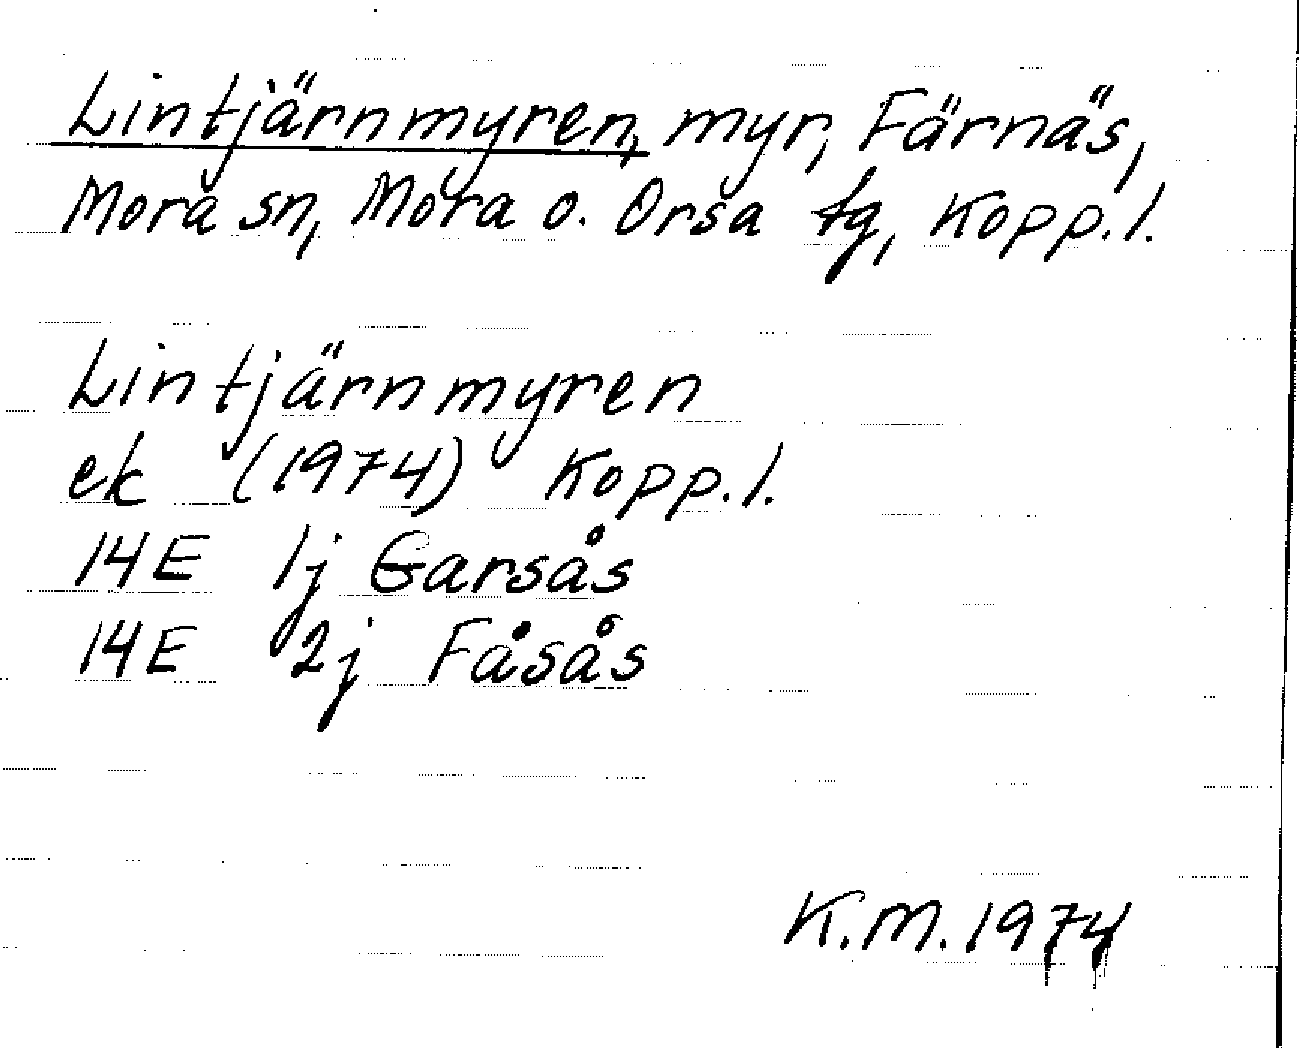 Lintjärnmyren, myr, Färnäs,
Mora sn, Mora o. Orsa tg, Kopp.l.
Lintjärnmyren
ek (1974) Kopp.l.
14E 1j Garsås
14E 2j Fåsås
K.M.1974